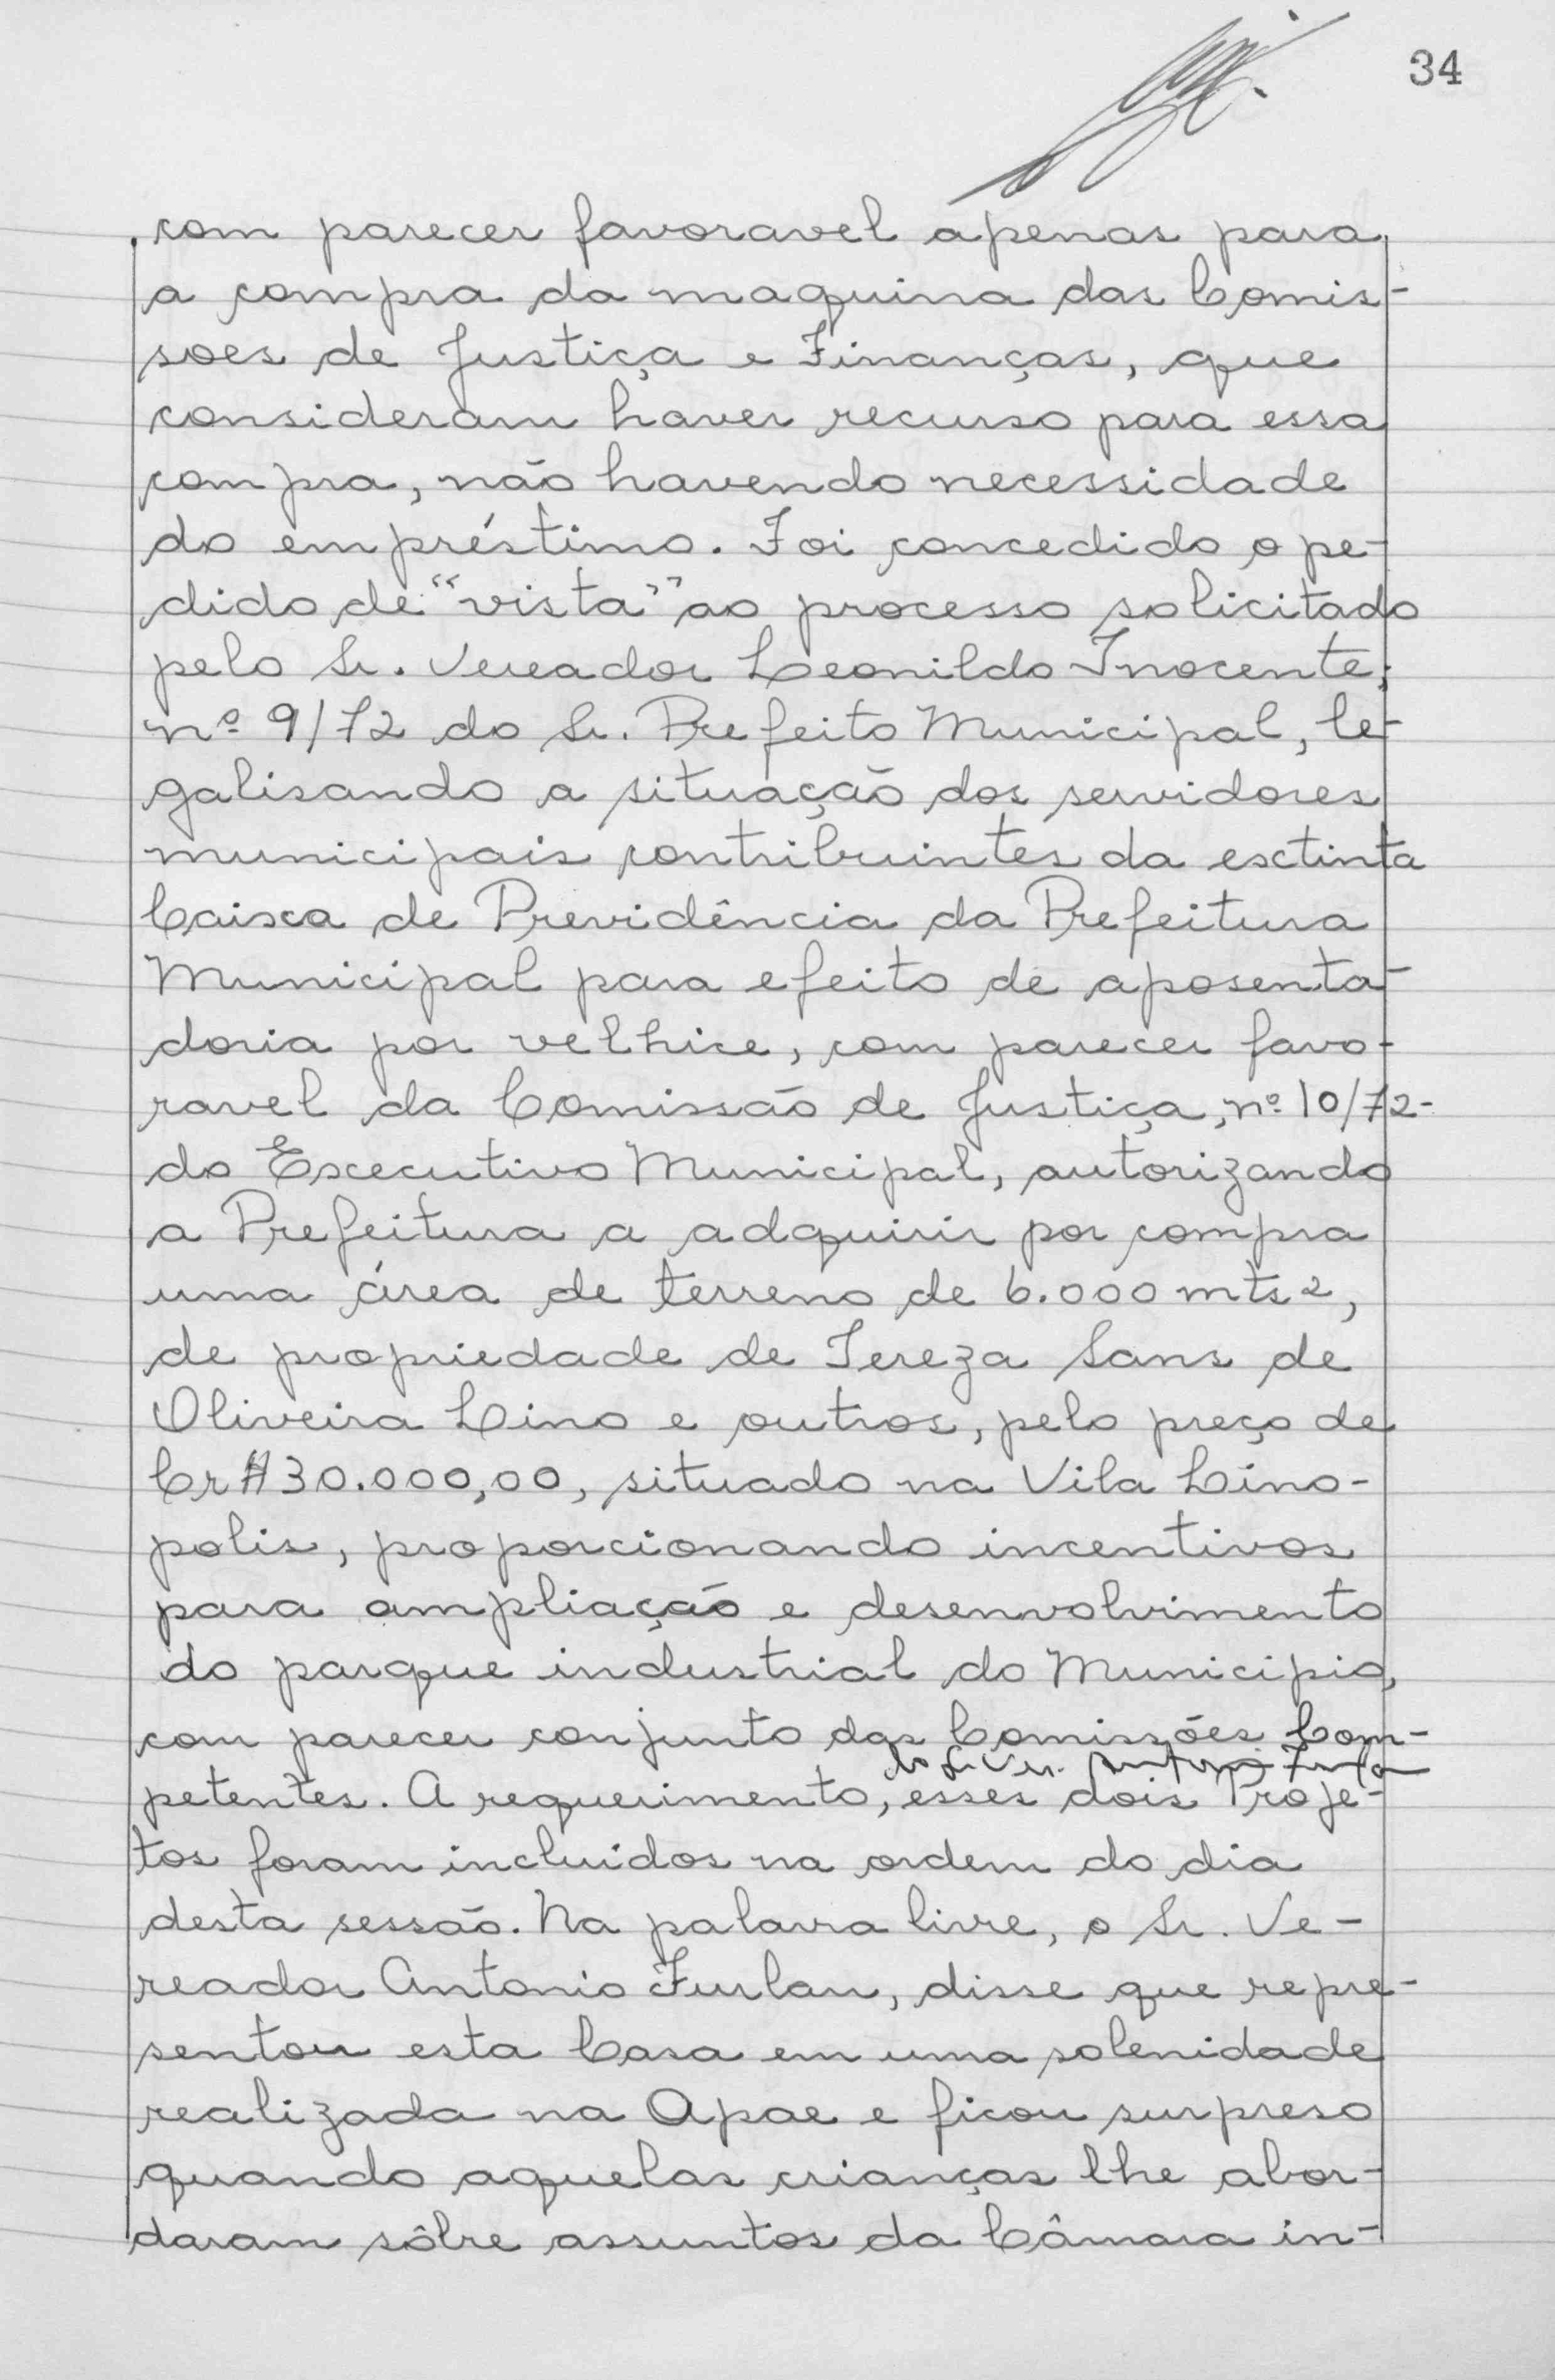 34
com parecer favoravel apenas para
a compra da maquina das Comis-
soes de Justiça e Finanças, que
consideram haver recurso para essa
compra, não havendo necessidade
do empréstimo. Foi concedido o pe-
dido de "vista" ao processo solicitado
pelo Sr. Vereador Leonildo Inocente;
nº 9/72 do Sr. Prefeito Municipal, le-
galisando a situação dos servidores
municipais contribuintes da extinta
Caixa de Previdência da Prefeitura
Municipal para efeito de aposenta-
doria por velhice, com parecer favo-
ravel da Comissão de Justiça, nº 10/72-
do Executivo Municipal, autorizando
a Prefeitura a adquirir por compra
uma área de terreno de 6.000 mts2,
de propriedade de Tereza Sans de
Oliveira Lino e outros, pelo preço de
Cr$30.000,00, situado na Vila Lino-
polis, proporcionando incentivos
para ampliação e desenvolvimento
do parque industrial do Municipio,
com parecer conjunto das Comissões Com-
do Sr. Ver. Antonio Furlan
petentes. A requerimento, esses dois Proje-
tos foram incluidos na ordem do dia
desta sessão. Na palavra livre, o Sr. Ve-
reador Antonio Furlan, disse que repre-
sentou esta Casa em uma solenidade
realizada na Apae e ficou surpreso
quando aquelas crianças lhe abor-
daram sôbre assuntos da Câmara in-